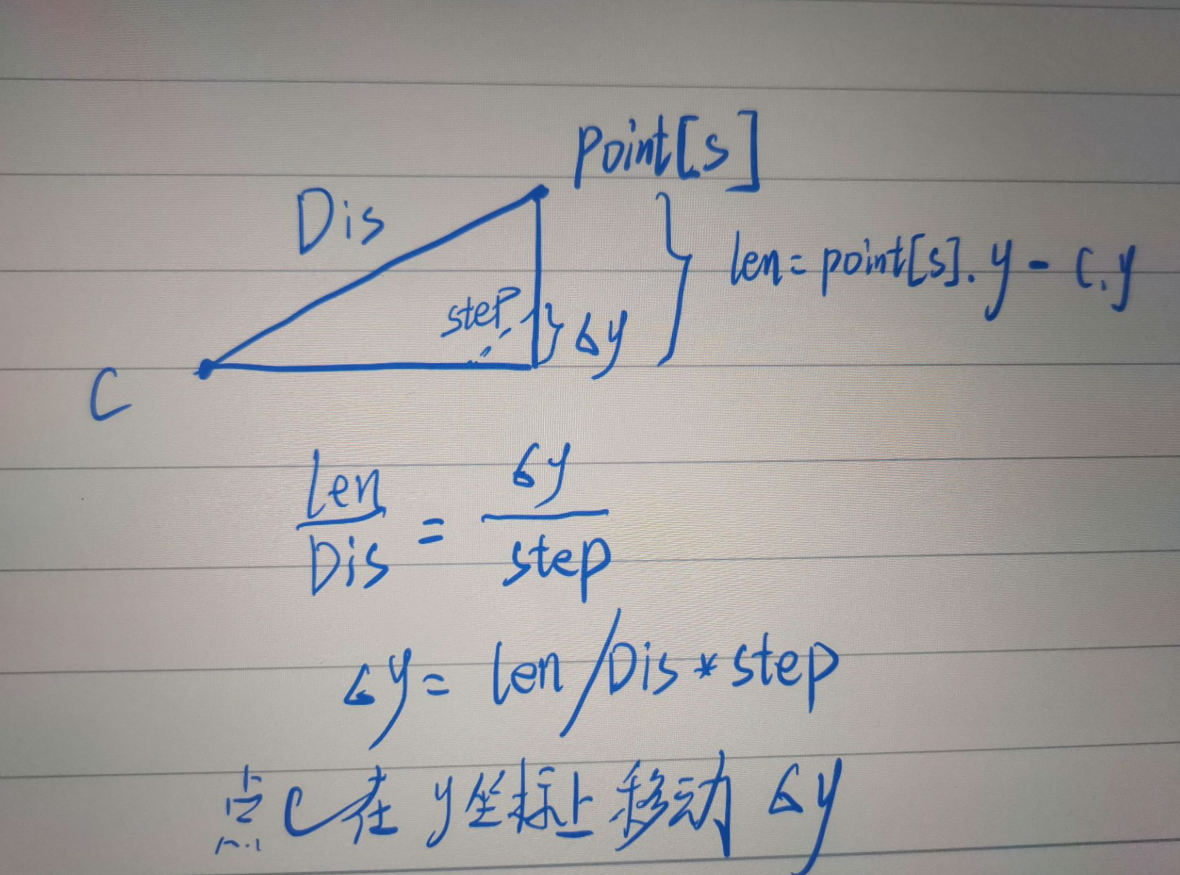 point[s]
Dis
len = point[s].y - C.y
step
Δy
C
len/Dis = Δy/step
Δy = len/Dis*step
点C在y坐标上移动Δy